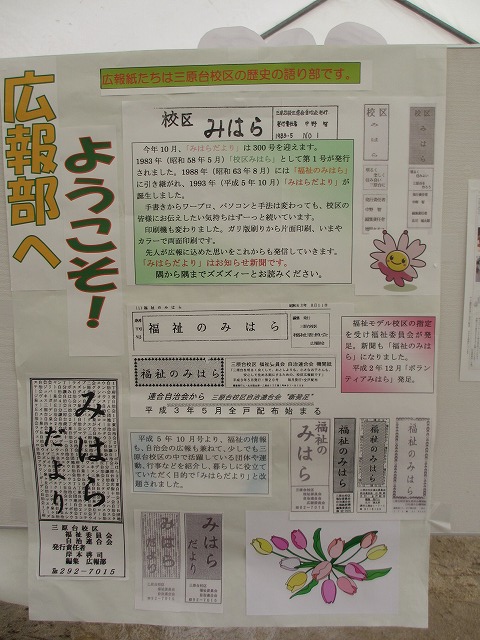 広報紙たちは三原台校区の歴史の語り部です。
広報部へ
ようこそ!
校区 みはら
1983-5 NO1
今年10月、「みはらだより」は300号を迎えます。
1983年（昭和58年5月）「校区みはら」として第1号が発行
されました。1988年（昭和63年8月）には「福祉のみはら」
に引き継がれ、1993年（平成5年10月）「みはらだより」が
誕生しました。
手書きからワープロ、パソコンと手法は変わっても、校区の
皆様にお伝えしたい気持ちはずーっと続いています。
印刷機も変わりました。ガリ版刷りから片面印刷、いまや
カラーで両面印刷です。
先人が広報に込めた思いをこれからも発信していきます。
「みはらだより」はお知らせ新聞です。
隅から隅までズズズィーとお読みください。
校区
みはら
校区
みはら
福祉のみはら
福祉のみはら
三原台校区 福祉委員会 自治連合会 機関紙
連合自治会から 三原台校区自治連合会“新発足”
平成3年5月全戸配布始まる
福祉モデル校区の指定
を受け福祉委員会が発
足。新聞も「福祉のみは
ら」になりました。
平成2年12月「ボラン
ティアみはら」発足。
平成5年10月号より、福祉の情報
も、自治会の広報も兼ねて、少しでも三
原台校区の中で活躍している団体や運
動、行事などを紹介し、暮らしに役立て
ていただく目的で「みはらだより」と
改題されました。
みはら
だより
三原台校区
福祉委員会
自治連合会
発行責任者
岸本 啓司
編集 広報部
℡292-7015
福祉の
みはら
福祉のみはら
福祉のみはら
福祉のみはら
みはら
だより
みはら
だより